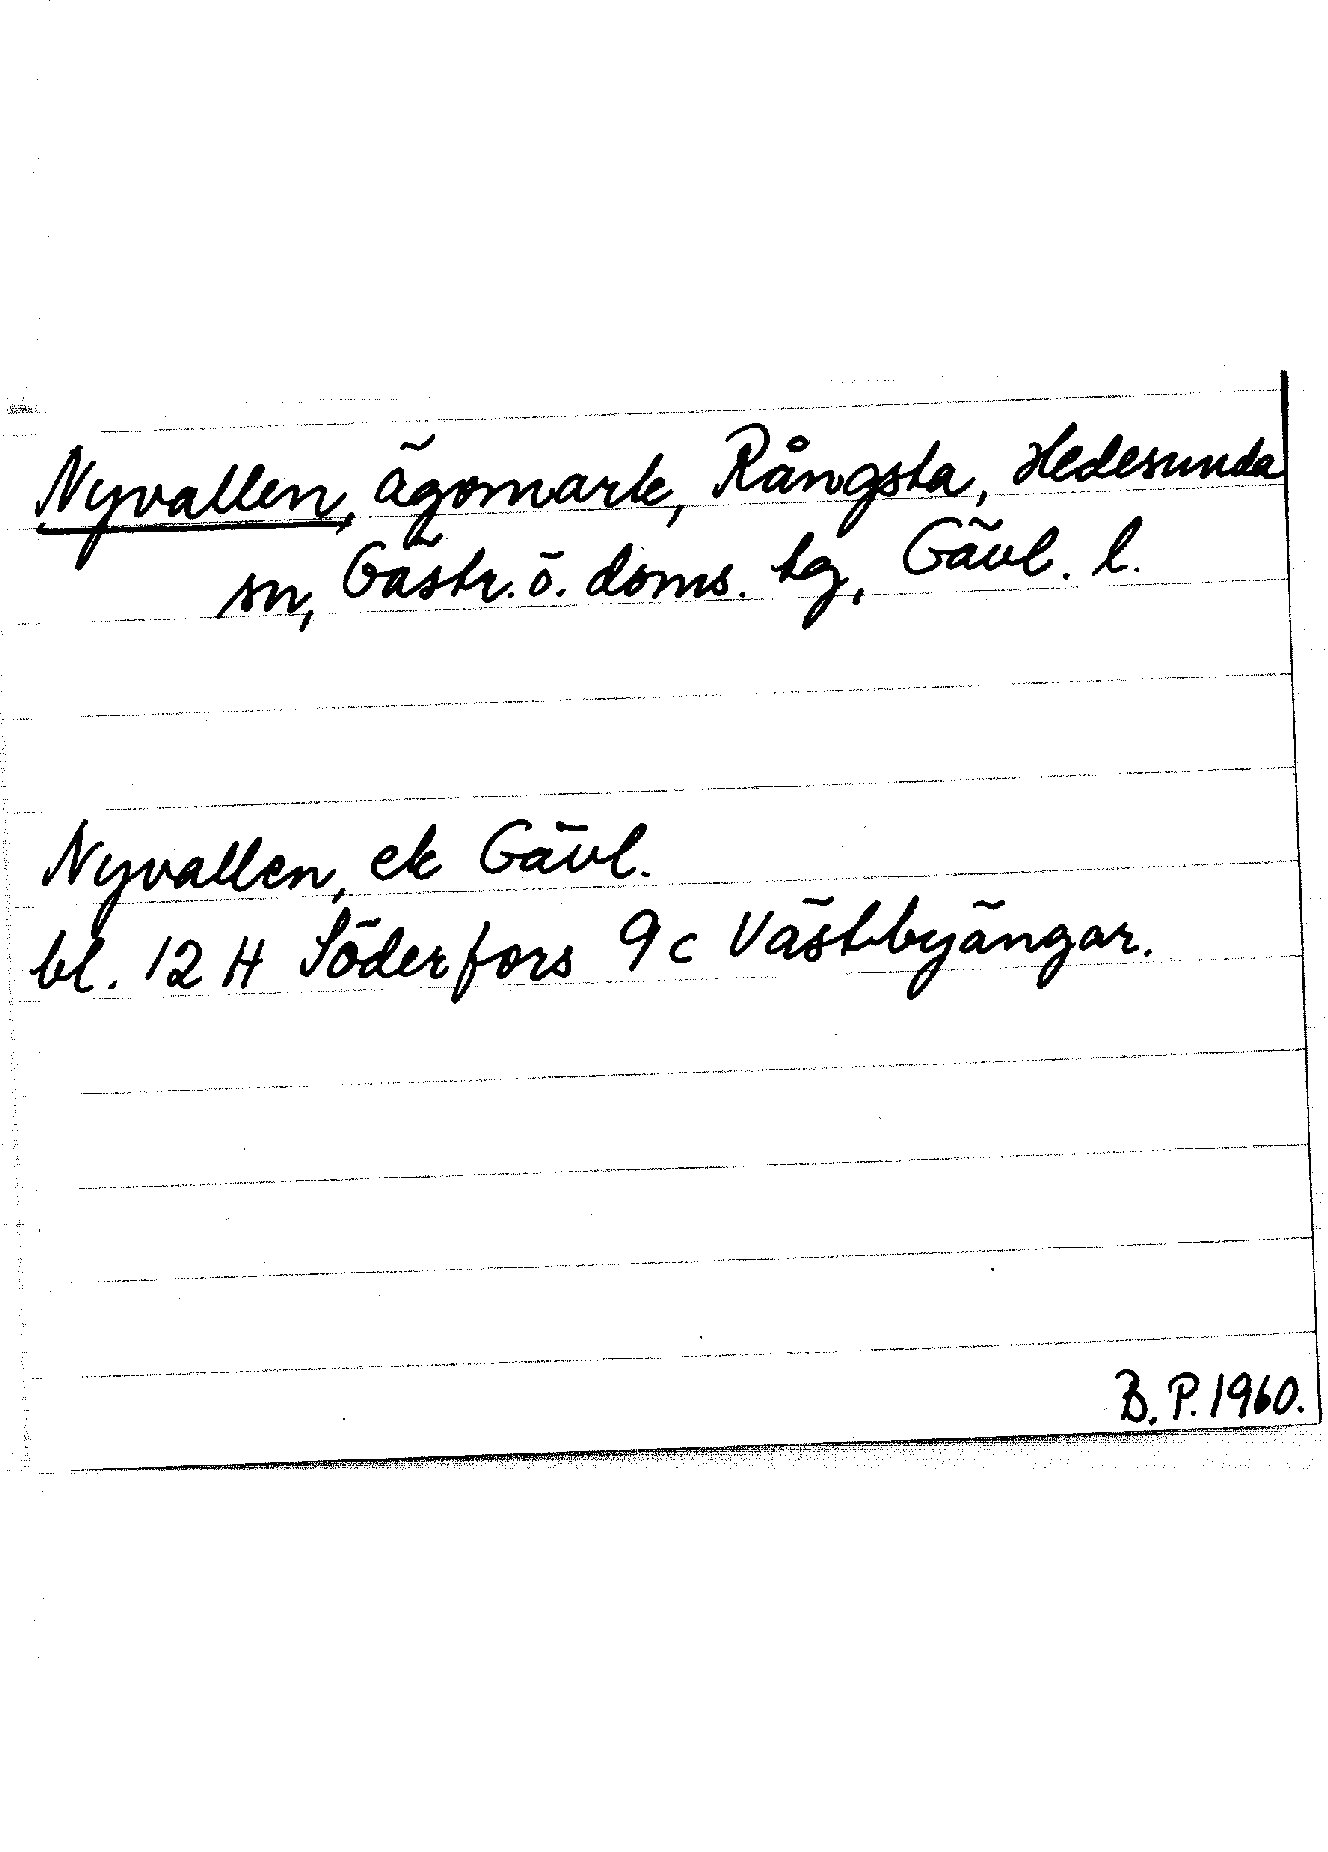 Nyvallen, ägomark, Rångsta, Hedesunda
sn, Gästr. ö. doms. tg, Gävl. l.
Nyvallen, ek Gävl.
bl. 12 H Söderfors 9 c Västbyängar.
B. P. 1960.